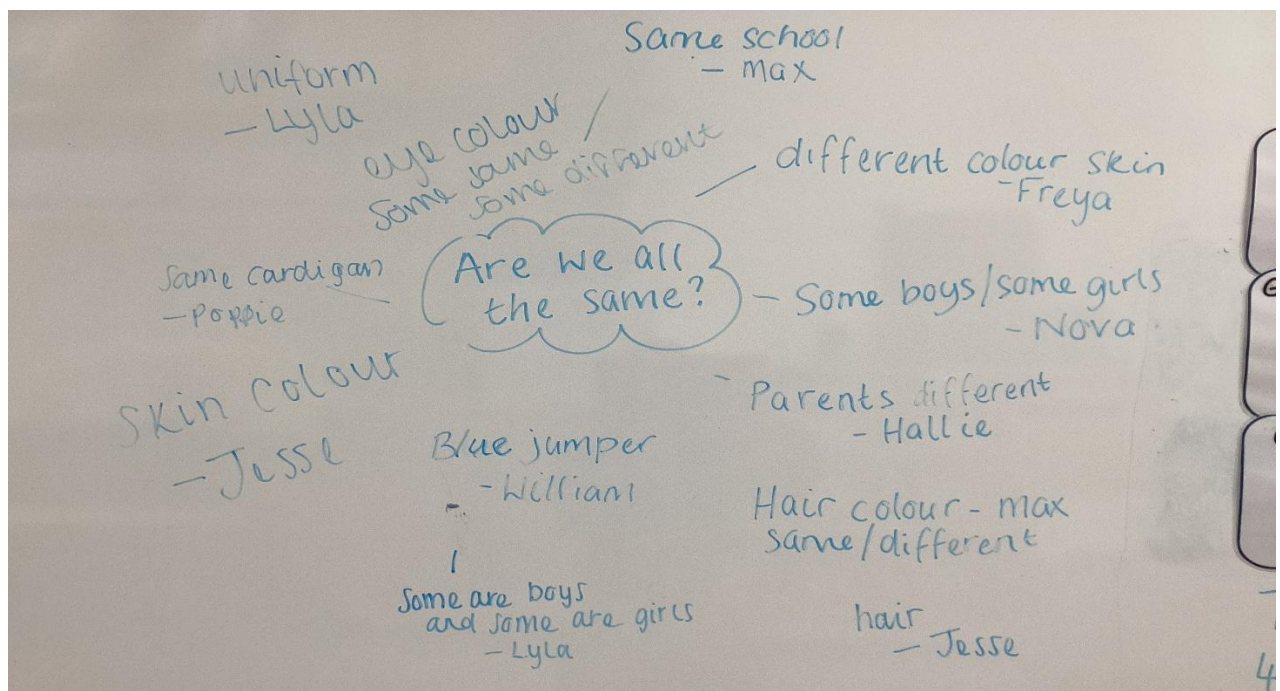 Same school
- max
uniform
- Lyla
eye colour
some same /
some different
different colour skin
- Freya
Are we all
the same?
same cardigan
- Poppie
Some boys/some girls
- Nova
Skin colour
- Jesse
Parents different
- Hallie
Blue jumper
- William
Hair colour - max
same/different
Some are boys
and some are girls
- Lyla
hair
- Jesse
4